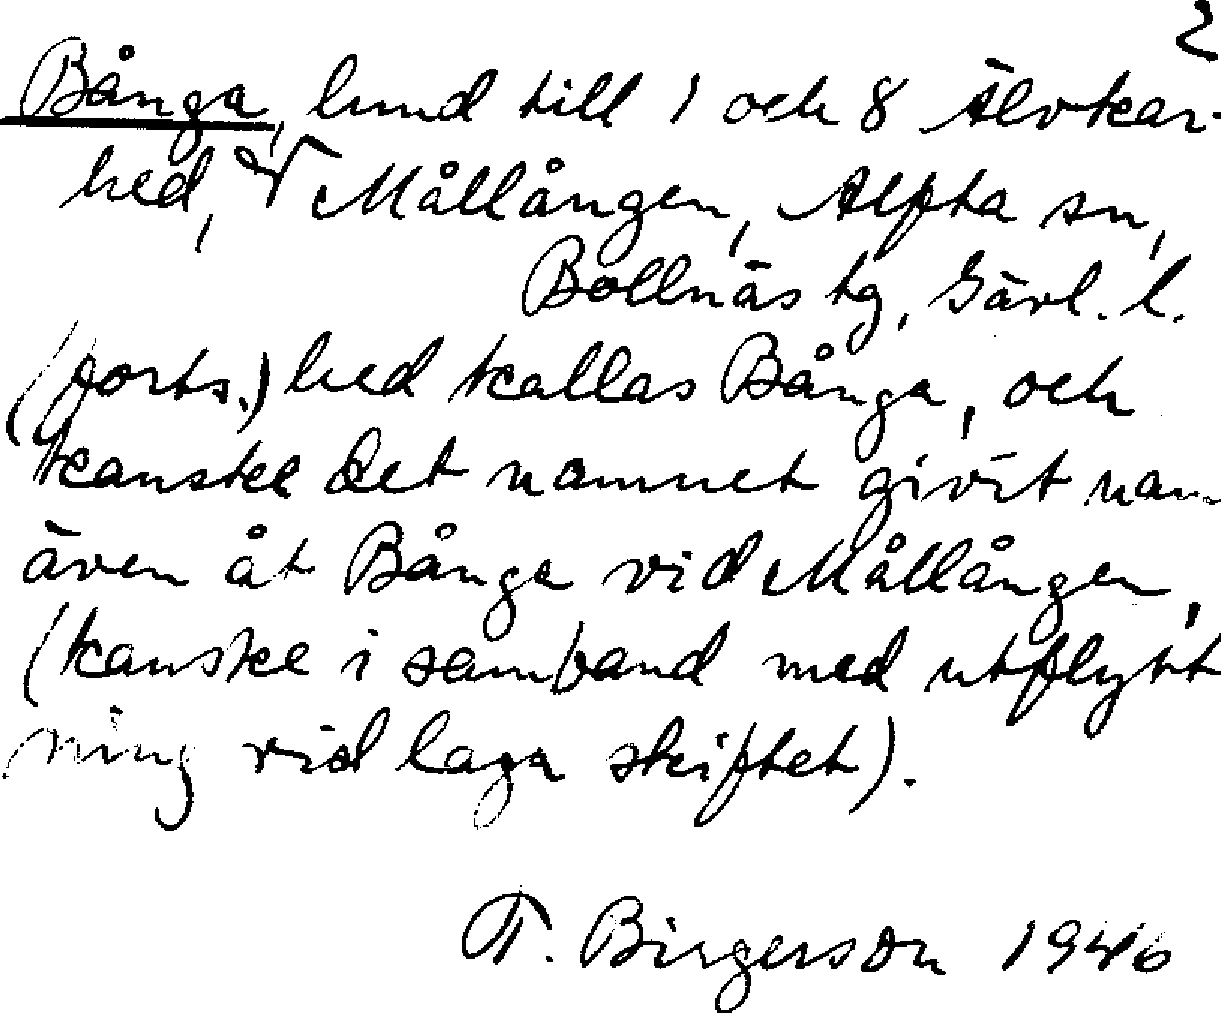 2
Bånga, lund till 1 och 8 Älvkar-
hed, V Mållången, Alfta sn,
Bollnäs tg, Gävl. l.
(forts.) hed kallas Bånga, och
kanske det namnet givit nam
även åt Bånga vid Mållången,
(kanske i samband med utflytt
ning vid laga skiftet).
F. Birgerson 1946